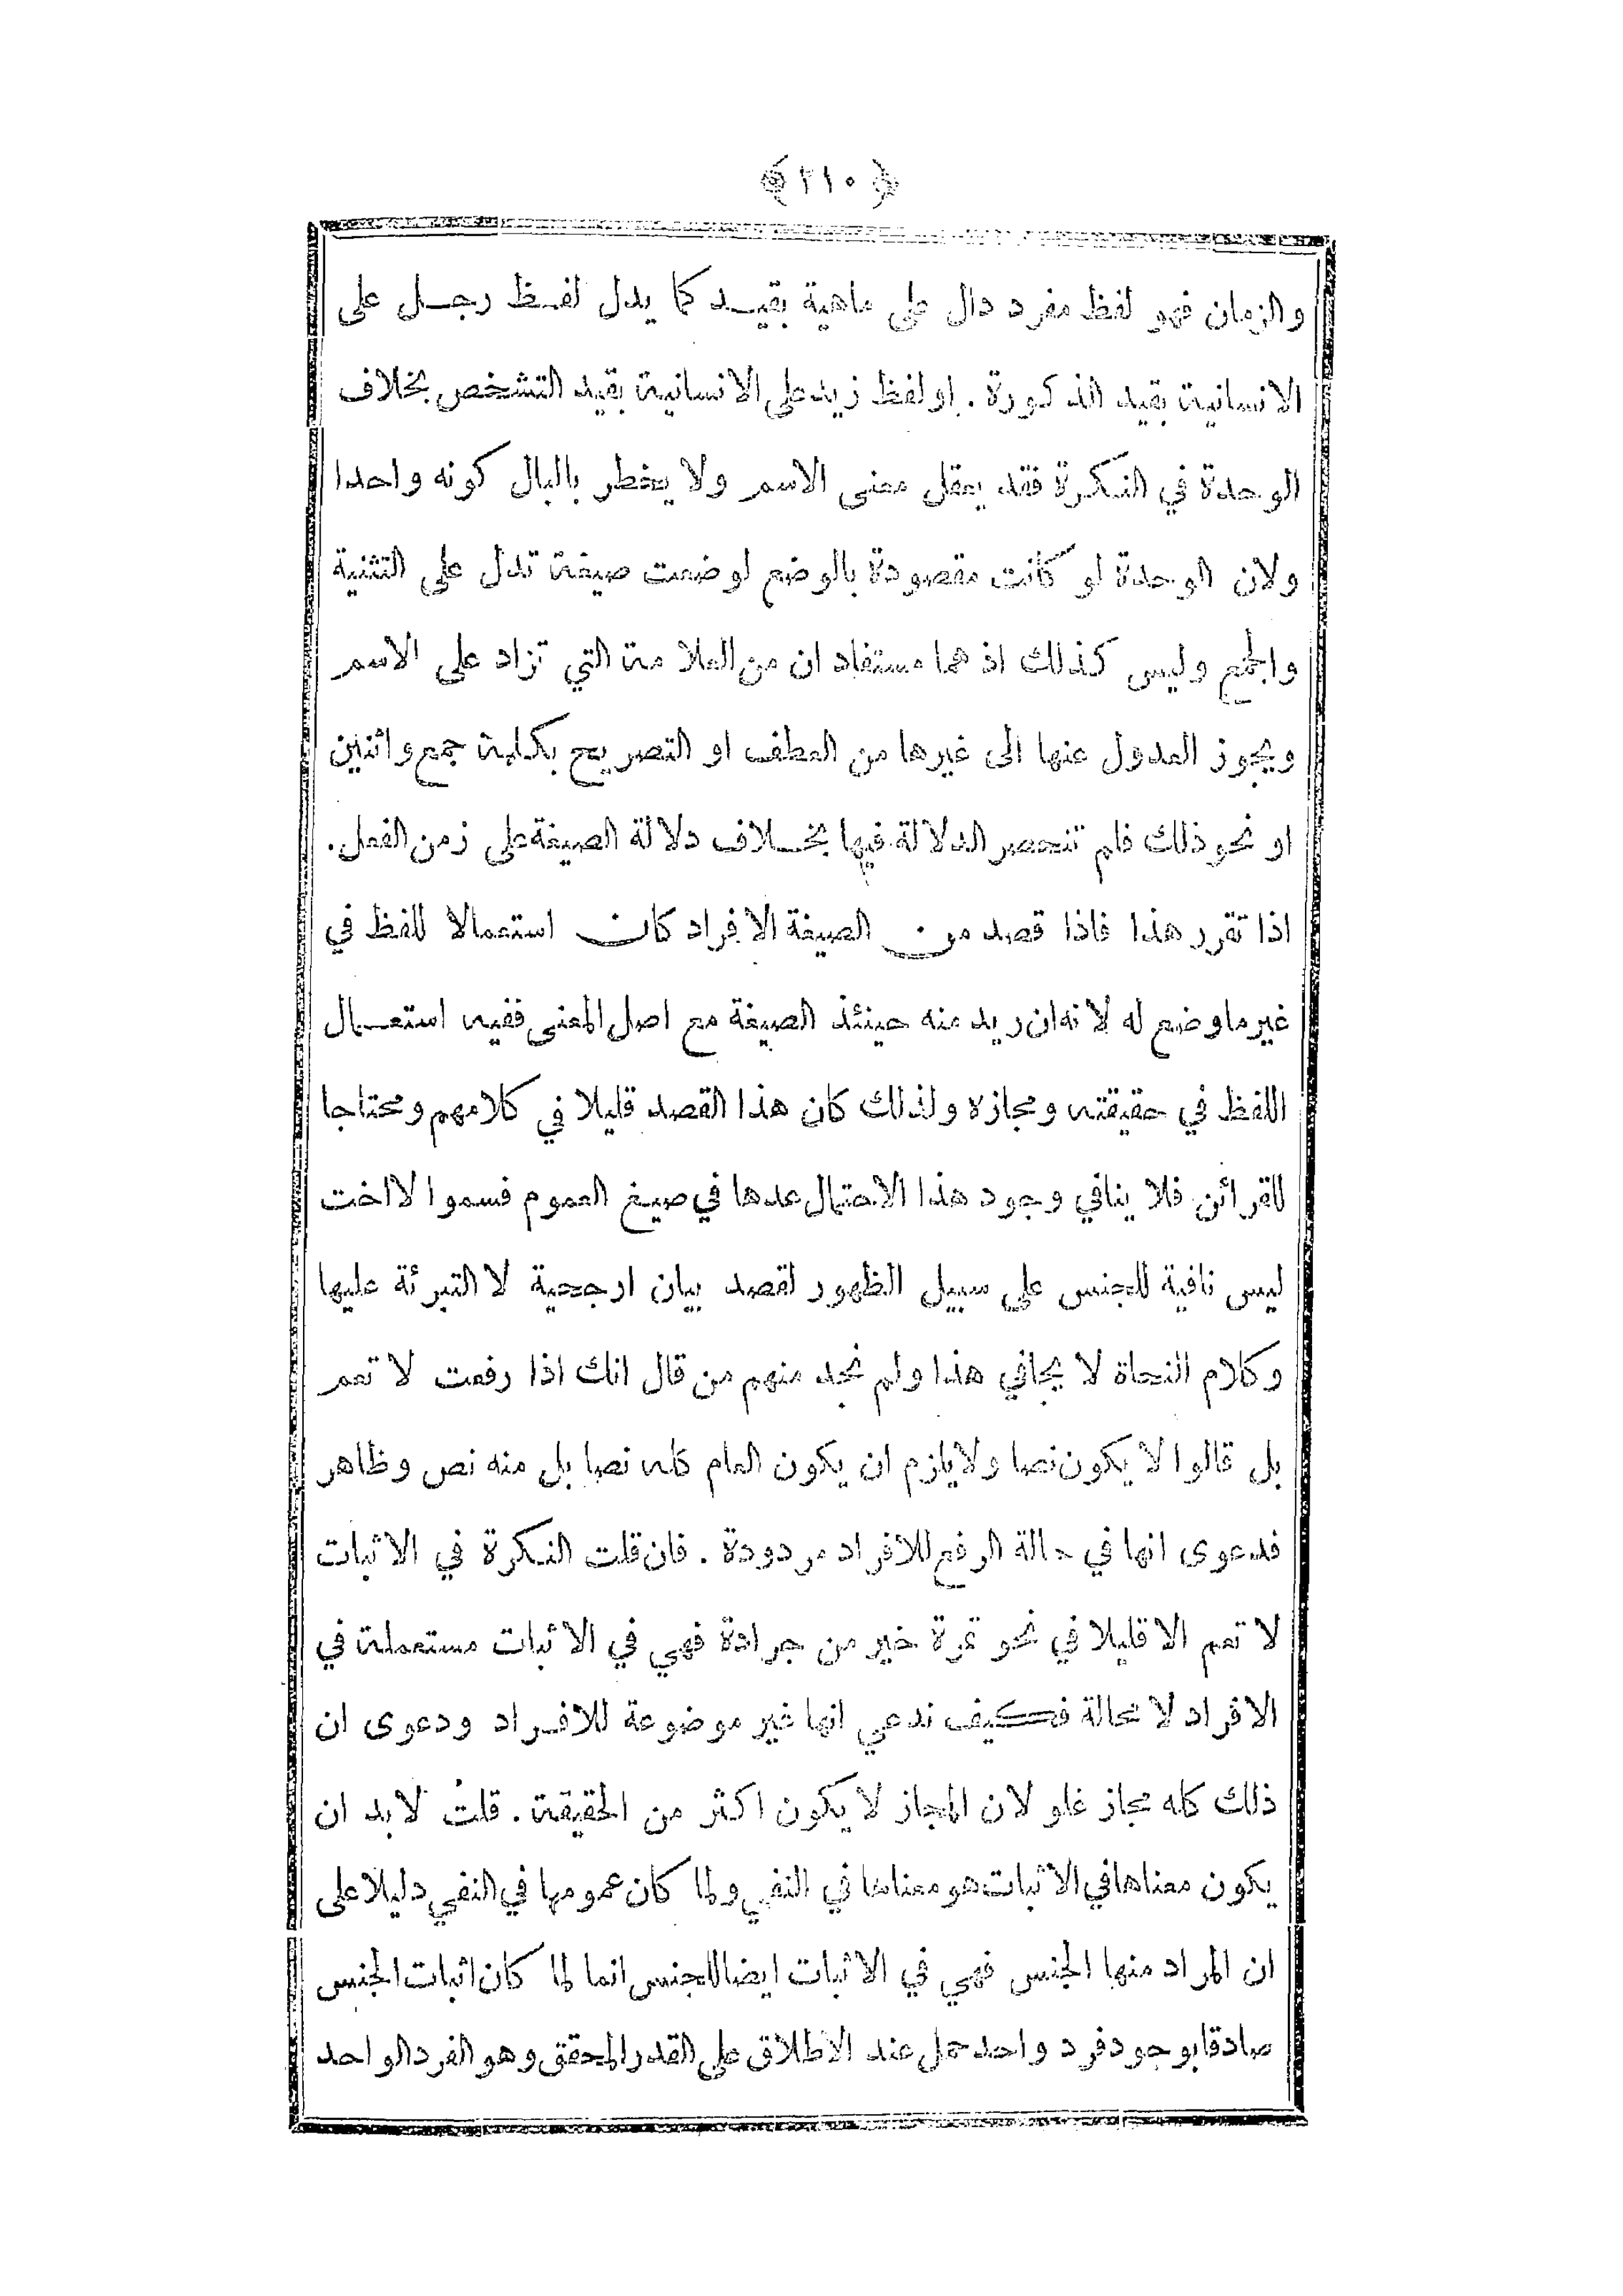 ﴿ ٢١٠ ﴾
والزمان فهو لفظ مفرد دال على ماهية بقيد كما يدل لفظ رجل على
الانسانية بقيد الذكورة . او لفظ زيد على الانسانية بقيد التشخص بخلاف
الوحدة في النكرة فقد يعقل معنى الاسم ولا يخطر بالبال كونه واحدا
ولان الوحدة لو كانت مقصودة بالوضع لوضعت صيغة تدل على التثنية
والجمع وليس كذلك اذ هما مستفادان من العلامة التي تزاد على الاسم
ويجوز العدول عنها الى غيرها من العطف او التصريح بكلمة جمع واثنين
او نحو ذلك فلم تنحصر الدلالة فيها بخلاف دلالة الصيغة على زمن الفعل .
اذا تقرر هذا فاذا قصد من الصيغة الافراد كان استعمالا للفظ في
غير ما وضع له لانه ان ريد منه حينئذ الصيغة مع اصل المعنى ففيه استعمال
اللفظ في حقيقته ومجازه ولذلك كان هذا القصد قليلا في كلامهم ومحتاجا
للقرائن فلا ينافي وجود هذا الاحتمال عدها في صيغ العموم فسموا لا اخت
ليس نافية للجنس على سبيل الظهور لقصد بيان ارجحية لا التبرئة عليها
وكلام النحاة لا يجافي هذا ولم نجد منهم من قال انك اذا رفعت لا تعم
بل قالوا لا يكون نصا ولا يلزم ان يكون العام كله نصا بل منه نص وظاهر
فدعوى انها في حالة الرفع للافراد مردودة . فان قلت النكرة في الاثبات
لا تعم الا قليلا في نحو تمرة خير من جرادة فهي في الاثبات مستعملة في
الافراد لا محالة فكيف ندعي انها غير موضوعة للافراد ودعوى ان
ذلك كله مجاز غلو لان المجاز لا يكون اكثر من الحقيقة . قلتُ لا بد ان
يكون معناها في الاثبات هو معناها في النفي ولما كان عمومها في النفي دليلا على
ان المراد منها الجنس فهي في الاثبات ايضا للجنس انما لما كان اثبات الجنس
صادقا بوجود فرد واحد حمل عند الاطلاق على القدر المحقق وهو الفرد الواحد